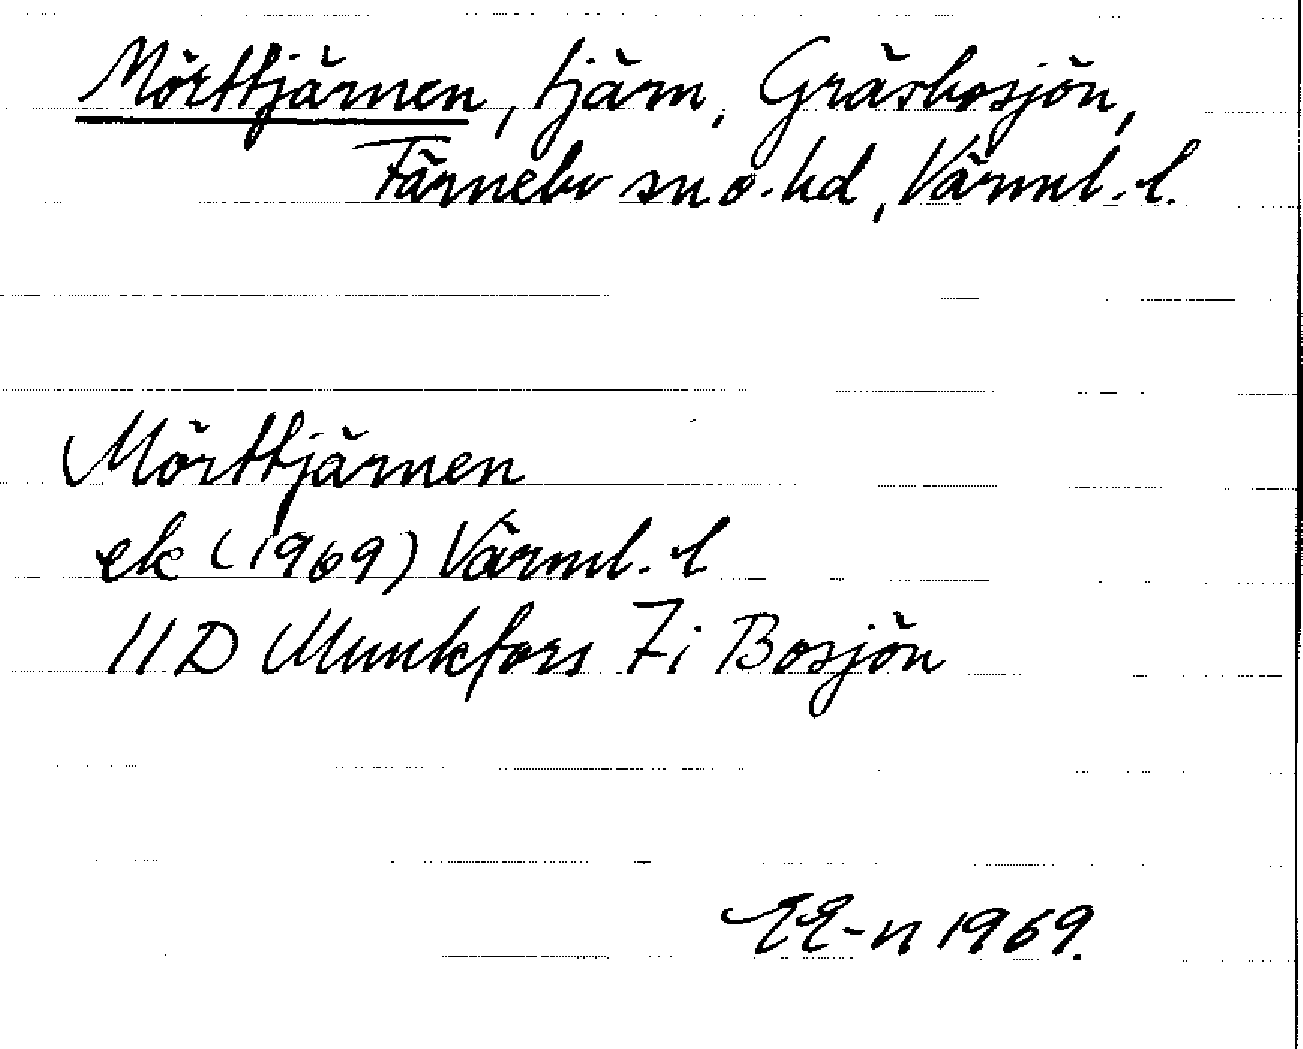 Mörttjärnen, tjärn, Gräsbosjön,
Färnebo sn o. hd, Värml. l.
Mörttjärnen
ek (1969) Värml. l
11D Munkfors 7i Bosjön
1969.